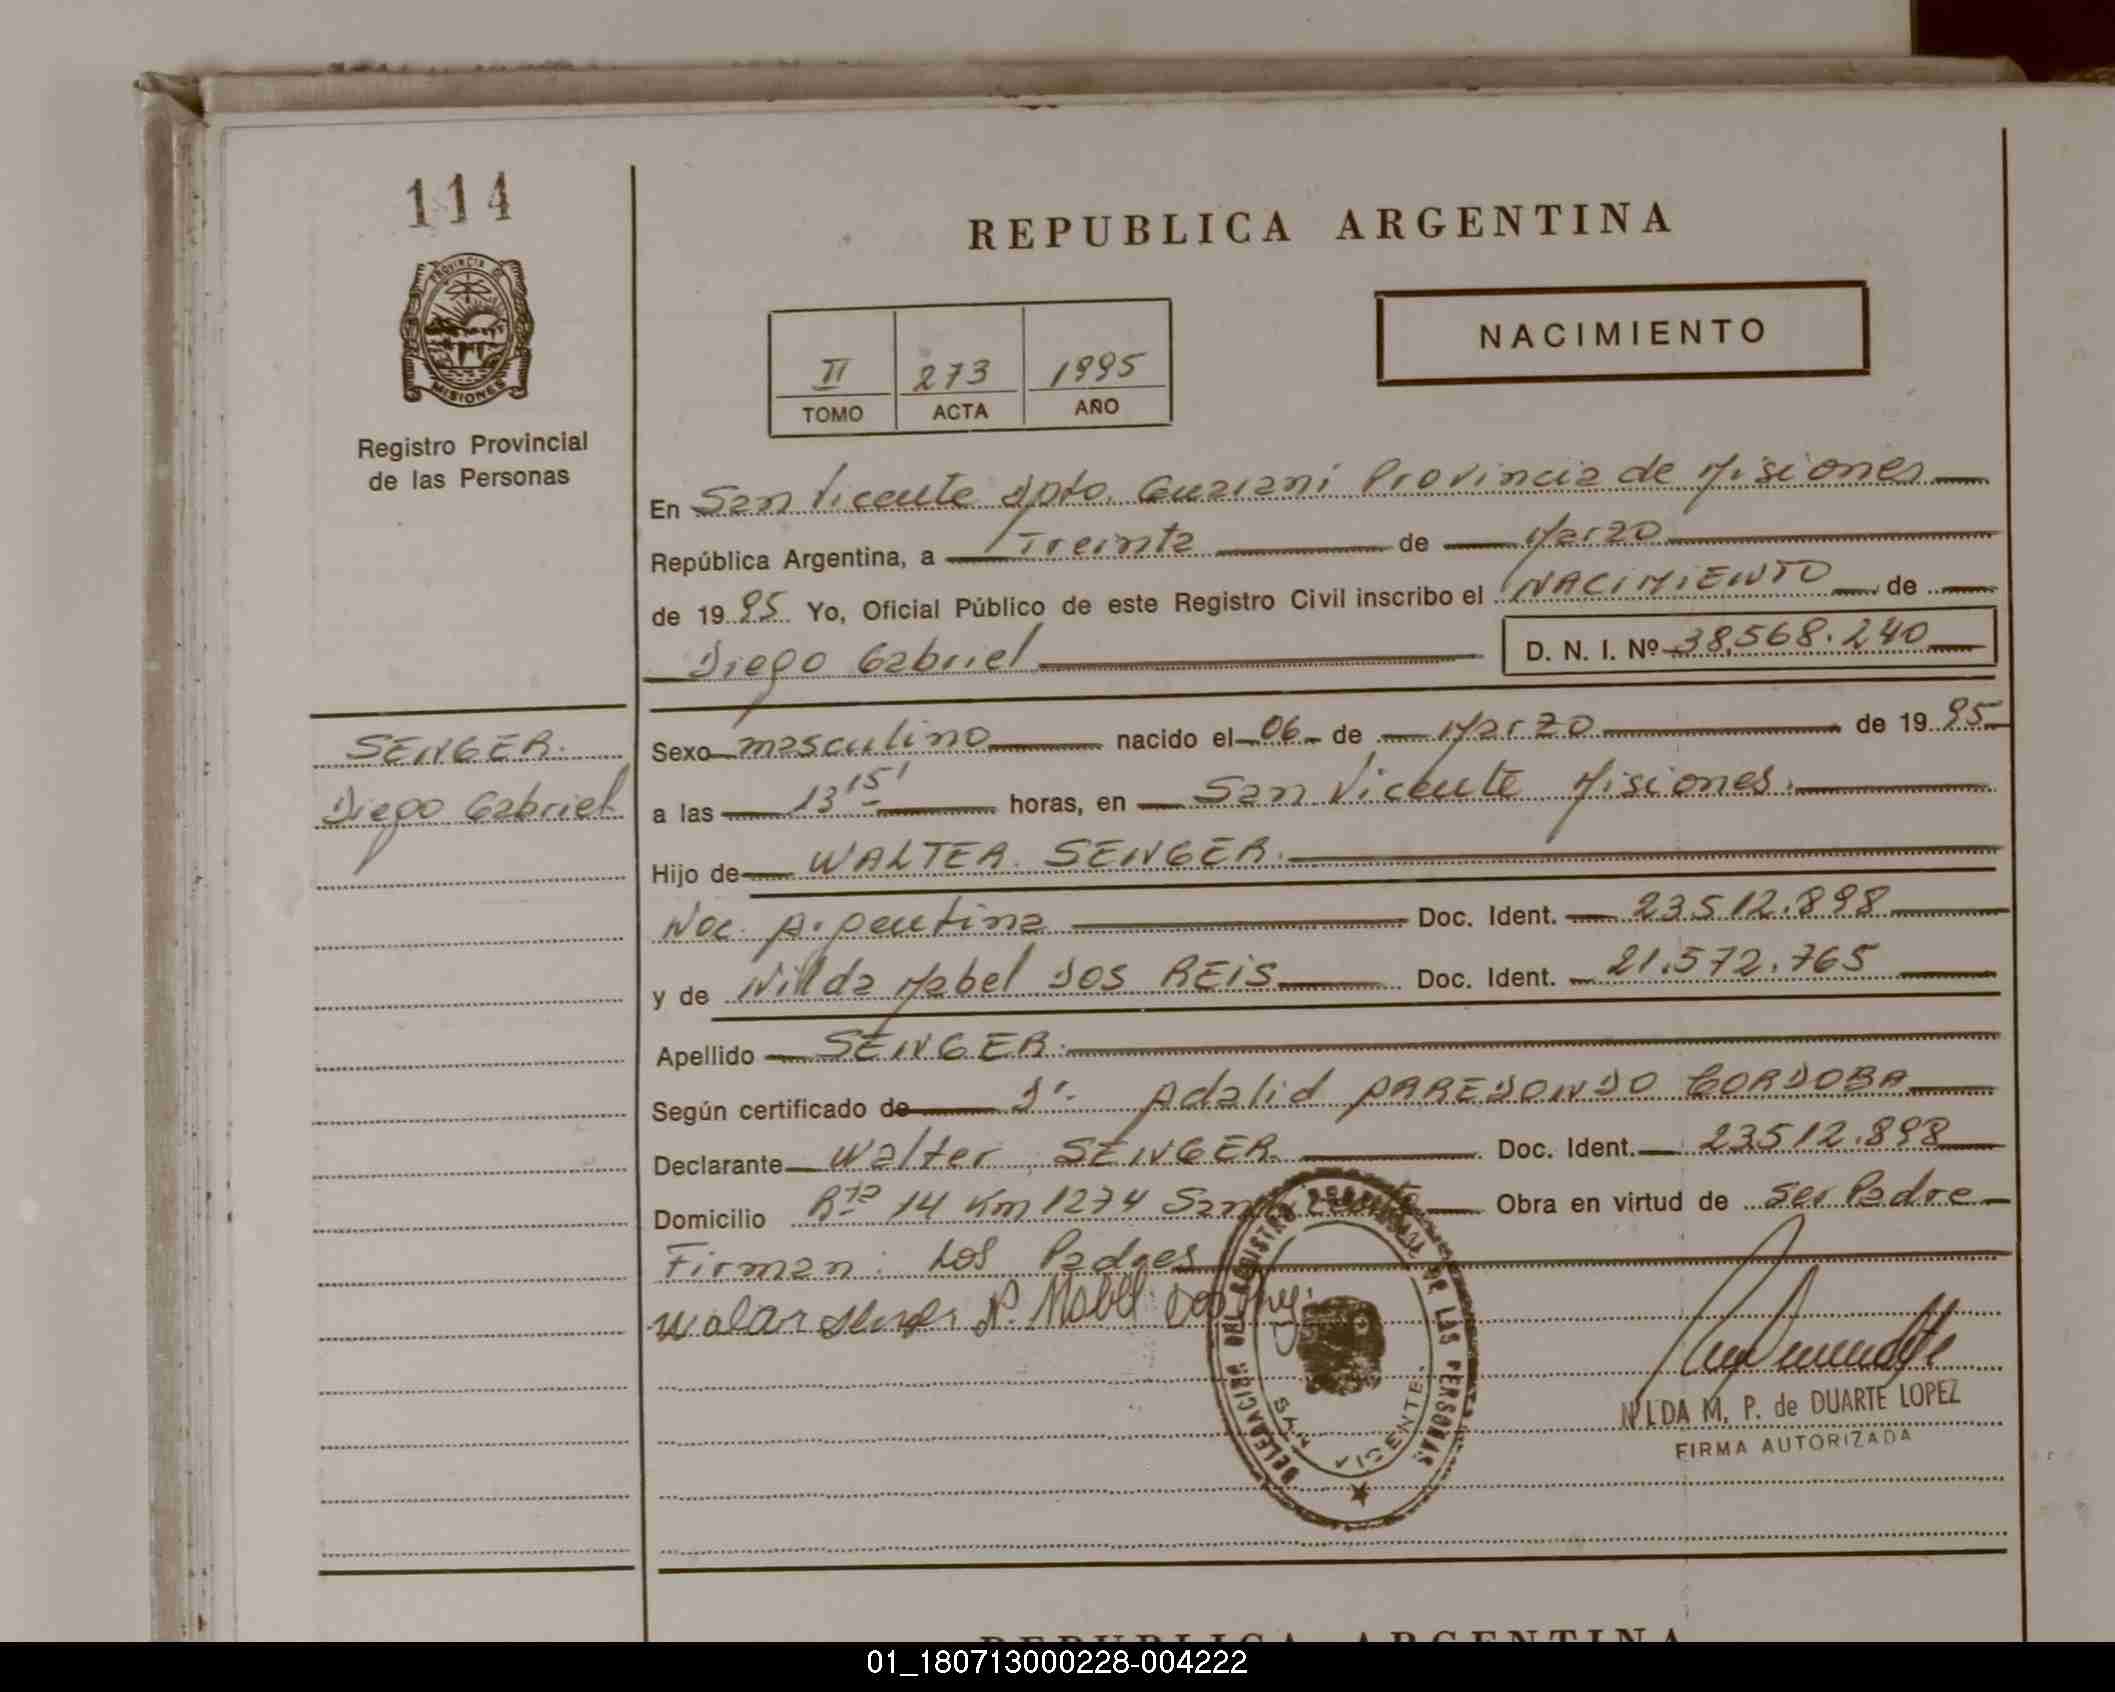 114
PROVINCIA DE
MISIONES
Registro Provincial
de las Personas
REPUBLICA ARGENTINA
NACIMIENTO
II 273 1995
TOMO ACTA AÑO
En San Vicente Dpto. Guarani Provincia de Misiones
República Argentina, a Treinta de Marzo
de 1995 Yo, Oficial Público de este Registro Civil inscribo el NACIMIENTO de
Diego Gabriel D. N. I. Nº 38.568.240
SENGER.
Diego Gabriel
Sexo masculino nacido el 06 de Marzo de 1995
a las 13 15' horas, en San Vicente Misiones.
Hijo de WALTER SENGER.
Nac. Argentina Doc. Ident. 23512.898
y de Nilda Mabel DOS REIS Doc. Ident. 21.572.765
Apellido SENGER.
Según certificado de Dr. Adalid ARREDONDO CORDOBA
Declarante Walter SENGER Doc. Ident. 23512.898
Domicilio Rta 14 Km 1274 San Vicente Obra en virtud de ser Padre
Firman: Los Padres
N. Mabel Dos
DELEGACION DEL REGISTRO PROVINCIAL DE LAS PERSONAS
SAN VICENTE
NILDA M. P. de DUARTE LOPEZ
FIRMA AUTORIZADA
REPUBLICA ARGENTINA
01_180713000228-004222